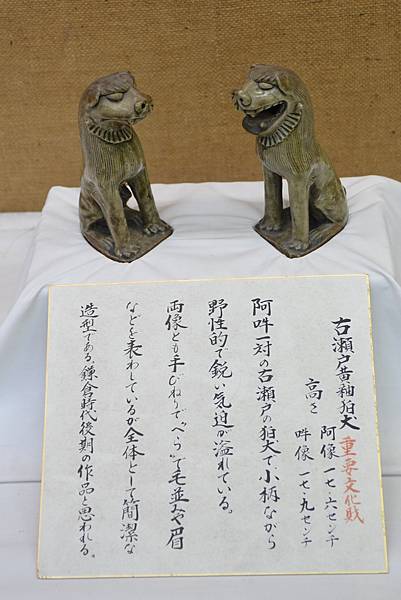 古瀬戸黄釉狛犬 重要文化財
高さ 阿像 一七・六センチ
吽像 一七・九センチ
阿吽一対の古瀬戸の狛犬で小柄ながら
野性的で鋭い気迫が溢れている。
両像とも手びねりで、へらで毛並みや眉
などを表わしているが全体として簡潔な
造型である。鎌倉時代後期の作品と思われる。